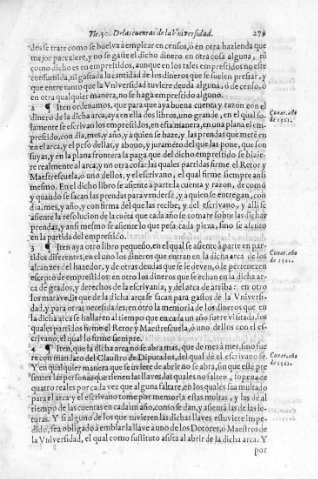 Tit. 30. De las cuentas de la Vniuersidad. 279
desde trate como se buelua à emplear en censos, ò en otra hazienda que
mejor pareciere, y no se gaste el dicho dinero en otra cosa alguna,
como dicho es en emprestidos, aunque en los tales emprestidos no este
consumida, ni gastada la cantidad de los dineros que se suelen prestar, y
que entre tanto que la Vniuersidad tuuiere deuda alguna, ò de censo, ò
en otra qualquier manera, no se haga emprestido alguno.
¶ Iten ordenamos, que para que aya buena cuenta y razon con el
dinero de la dicha arca, aya en ella dos libros, vno grande, en el qual so-
lamente se escriuan los emprestidos, en esta manera, en vna plana el em-
prestido, con dia, mes, y año, y à quien se haze, y las prendas que mete en
en el arca, y el peso dellas, y abono, y juramento del que las pone, que son
suyas, y en la plana frontera la paga que del dicho emprestido se hizie-
re realmente al arca, y no otra cosa: las quales partidas firme el Retor y
Maestrescuela, ò vno dellos, y el escriuano, el qual firme siempre ansi
mesmo. En el dicho libro se assiente à parte la cuenta y razon, de como
y quando se sacan las prendas para vender se, y à quien se entregan, con
dia, mes, y año, y con firma del que las recibe, y del escriuano, y alli se
assiente la resolucion de la cuenta que cada año se tomare sobre las dichas
prendas, y ansi mesmo se assiente lo que pesa cada pieça, sino se assento
en la partida del emprestido.
3 ¶ Iten aya otro libro pequeño, en el qual se assiente à parte en par-
tidos diferentes, en el vno los dineros que entran en la dicha arca de los
alcançes del hazedor, y de otras deudas que se le deuen, ò le pertenecen
excepto de emprestidos: en otro los dineros que se echan en la dicha ar-
ca de grados, y derechos de la escriuania, y del arca de arriba: en otro
los marauedis que de la dicha arca se sacan para gastos de la Vniuersi-
dad, y para otras necessidades: en otro la memoria de los dineros que en
la dicha arca se hallaren al tiempo que en cada vn año fuere visitada, los
quales partidos firme el Retor y Maestrescuela, ò vno dellos con el es-
criuano, el qual lo firme siempre.
4 ¶ Iten, que la dicha arca no se abra mas, que de mes à mes, sino fue
re con mandato del Claustro de Diputados, del qual dè fe el escriuano
Y en qualquier manera que se vuiere de abrir no se abra, sin que esté pre
sentes las personas que tienen las llaues, las quales no falten, so pena de
quatro reales por cada vez que alguna faltare, en los quales sea multado
para el arca, y el escriuano tome por memoria estas multas, y las dè al
tiempo de las cuentas en cada vn año, como se dan, y assentarà las de las le-
turas. Y si alguno de los que tuuieren las dichas llaues estuuiere impe-
dido, sea obligado à embiar la llaue à vno de los Dotores, ò Maestros de
la Vniuersidad, el qual como sustituto assista al abrir de la dicha arca. Y
por